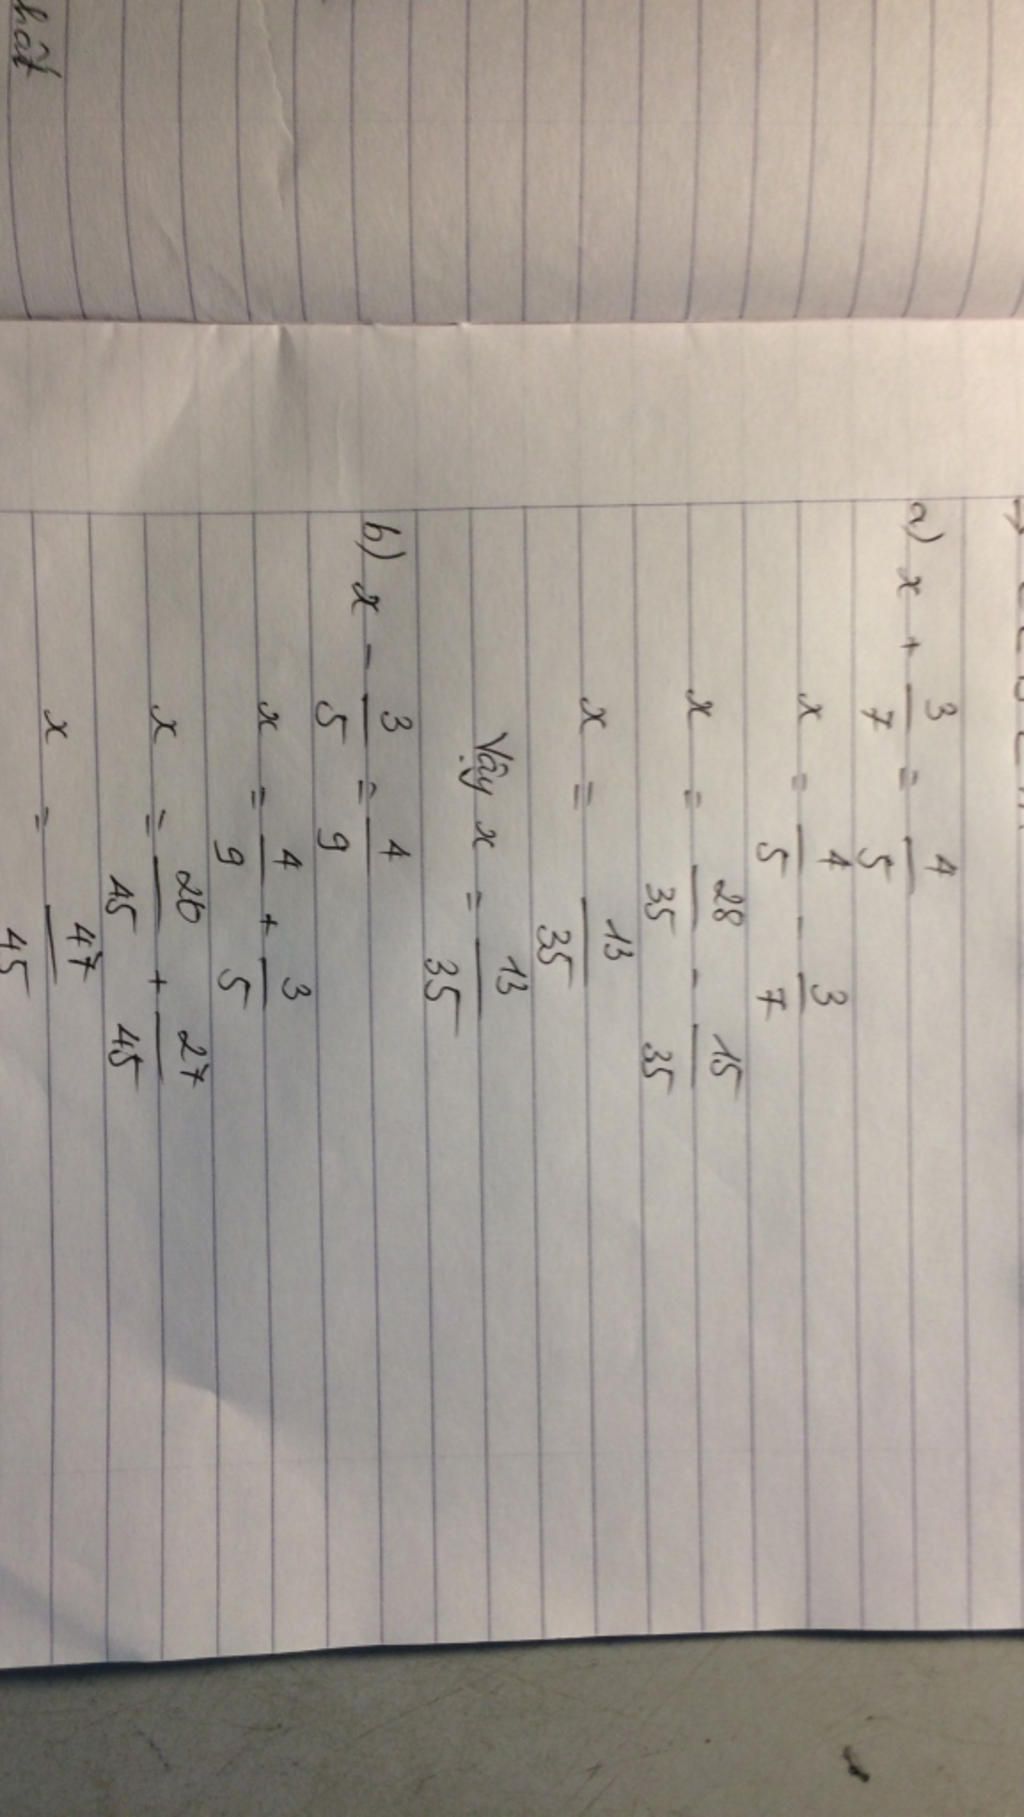 a) x + 3/7 = 4/5
x = 4/5 - 3/7
x = 28/35 - 15/35
x = 13/35
Vậy x = 13/35
b) x - 3/5 = 4/9
x = 4/9 + 3/5
x = 20/45 + 27/45
x = 47/45